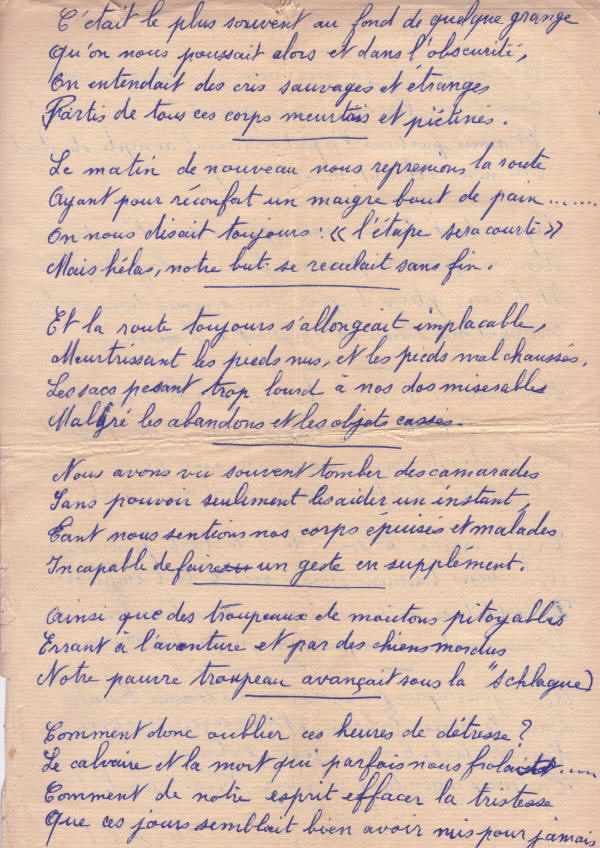 C'était le plus souvent au fond de quelque grange
Qu'on nous poussait alors et dans l'obscurité,
On entendait des cris sauvages et étranges
Partis de tous ces corps meurtris et piétinés.
Le matin de nouveau nous reprenions la route
Ayant pour réconfort un maigre bout de pain.......
On nous disait toujours : « l'étape sera courte »
Mais hélas, notre but se reculait sans fin.
Et la route toujours s'allongeait implacable,
Meurtrissant les pieds nus, et les pieds mal chaussés.
Les sacs pesant trop lourd à nos dos miserables
Malgré les abandons et les objets cassés.
Nous avons vu souvent tomber des camarades
Sans pouvoir seulement les aider un instant,
Tant nous sentions nos corps épuisés et malades
Incapable de faire un geste en supplément.
Ainsi que des troupeaux de moutons pitoyables
Errant à l'aventure et par des chiens mordus
Notre pauvre troupeau avançait sous la "schlague)
Comment donc oublier ces heures de détresse ?
Le calvaire et la mort qui parfois nous frolait.....
Comment de notre esprit effacer la tristesse
Que ces jours semblait bien avoir mis pour jamais